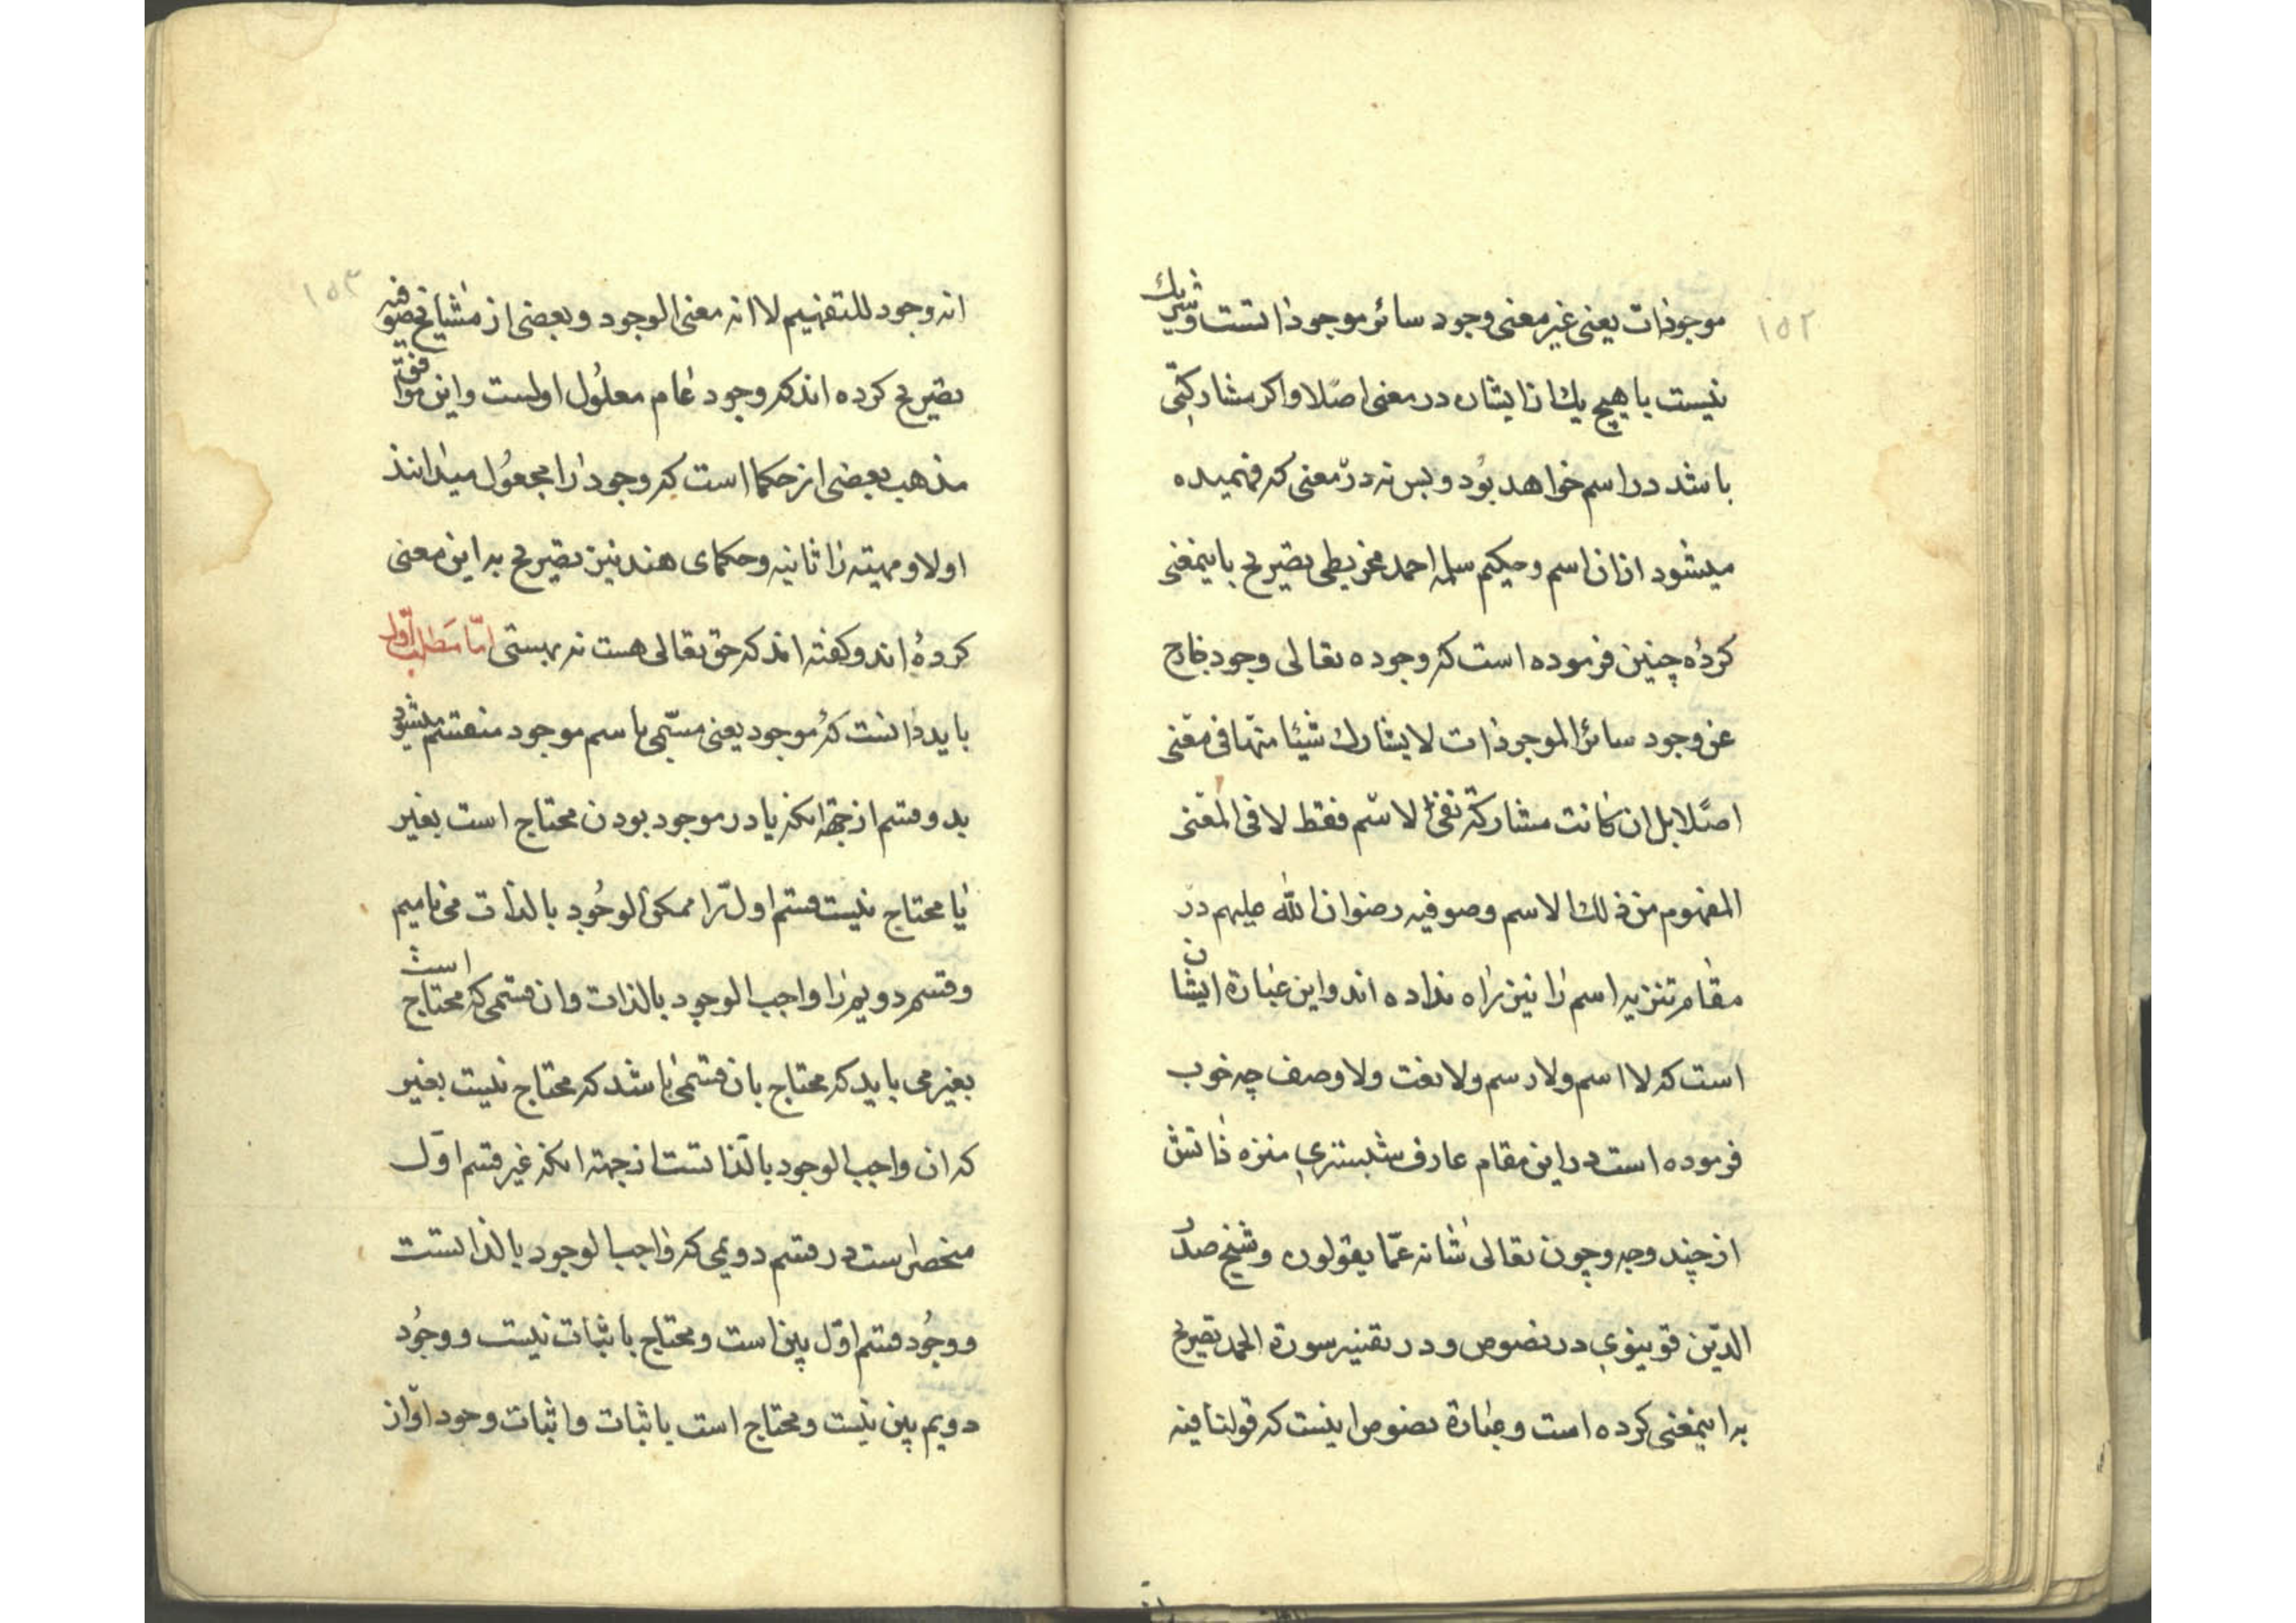 ١٥٢
موجودات یعنی غیر معنی وجود سائر موجوداتست و شریك
نیست با هیچ یك از ایشان در معنی اصلا و اکر مشارکتی
باشد در اسم خواهد بُود و بس نه در معنی که فهمیده
میشود از ان اسم و حکیم مسلمه احمد مجریطی تصریح باینمعنی
کرده چنین فرموده است که وجوده تعالی وجود خارج
عن وجود سائر الموجودات لا یشارك شیئا منها فی معنی
اصلا بل ان کانت مشارکة ففی الاسم فقط لا فی المعنی
المفهوم من ذلك الاسم و صوفیه رضوان الله علیهم در
مقام تنزیه اسم را نیز راه نداده اند و این عبارة ایشان
است که لا اسم ولا رسم ولا نعت ولا وصف چه خوب
فرموده است در این مقام عارف شبستری منزه ذاتش
از چند و چه و چون تعالی شانه عمّا یقولون و شیخ صدر
الدّین قوینوی در نصوص و در تفسیر سورة الحمد تصریح
به اینمعنی کرده است و عبارة نصوص اینست که قولنا فیه
١٥٣
انه وجود للتفهیم لا انه معنی الوجود و بعضی از مشایخ صوفیه
تصریح کرده اند که وجود عام معلُول اولست و این موافق
مذهب بعضی از حکما است که وجود را مجعوُل میدانند
اولا و مهیته را ثانیه و حکمای هند نیز تصریح به این معنی
کرده اند و کفته اند که حق تعالی هست نه بهستی امّا مَطلب اوّل
باید دانست که موجود یعنی مسمّی باسم موجود منقسم میشود
بدو قسم از جهة انکه یا در موجود بودن محتاج است بغیر
یا محتاج نیست قسم اوّل را ممکن الوجُود بالذات می نامیم
و قسم دویم را واجب الوجود بالذات و ان قسمی که محتاج است
بغیر می باید که محتاج بان قسمی باشد که محتاج نیست بغیر
که ان واجب الوجود بالذاتست از جهته انکه غیر قسم اوّل
منحصر است در قسم دویمی که واجب الوجود بالذاتست
و وجُود قسم اوّل بین است و محتاج باثبات نیست و وجُود
دویم بین نیست و محتاج است باثبات و اثبات وجود او از